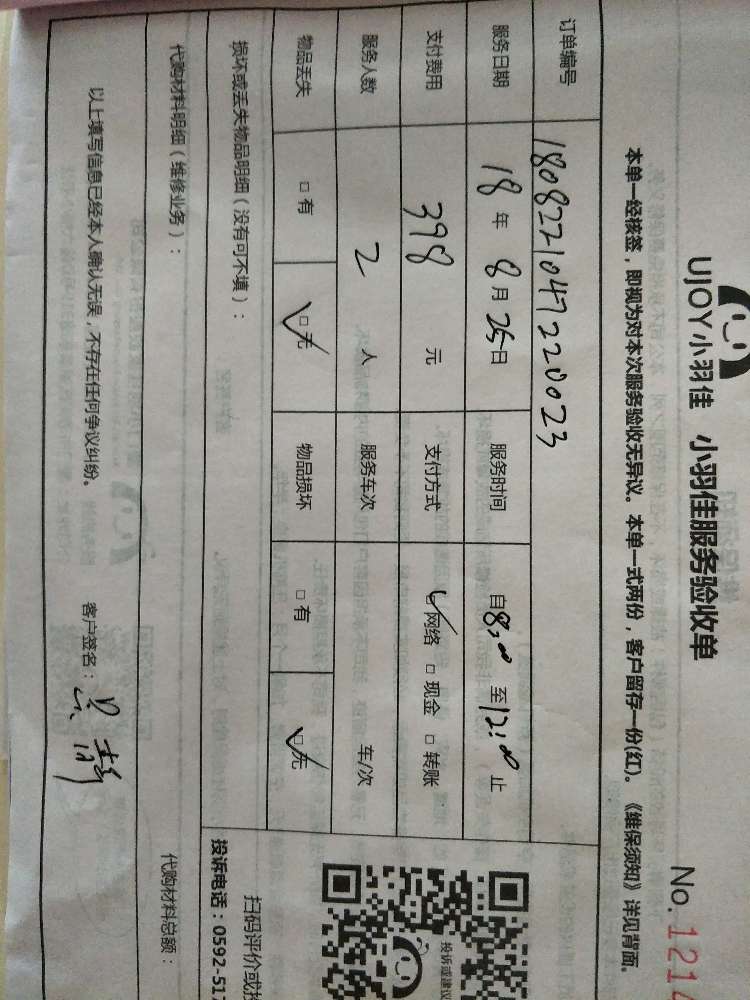 UJOY小羽佳 小羽佳服务验收单
No.1214
本单一经核签，即视为对本次服务验收无异议。本单一式两份，客户留存一份(红)。《维保须知》详见背面。
订单编号 1808221047220023
服务日期 18年8月25日 服务时间 自8:00至12:00止
支付费用 398 元 支付方式 ☑网络 □现金 □转账
服务人数 2 人 服务车次 车/次
物品丢失 □有 ☑无 物品损坏 □有 ☑无
损坏或丢失物品明细（没有可不填）：
代购材料明细（维修业务）： 代购材料总额：
以上填写信息已经本人确认无误，不存在任何争议纠纷。 客户签名：
投诉或建议
扫码评价或投
投诉电话：0592-517